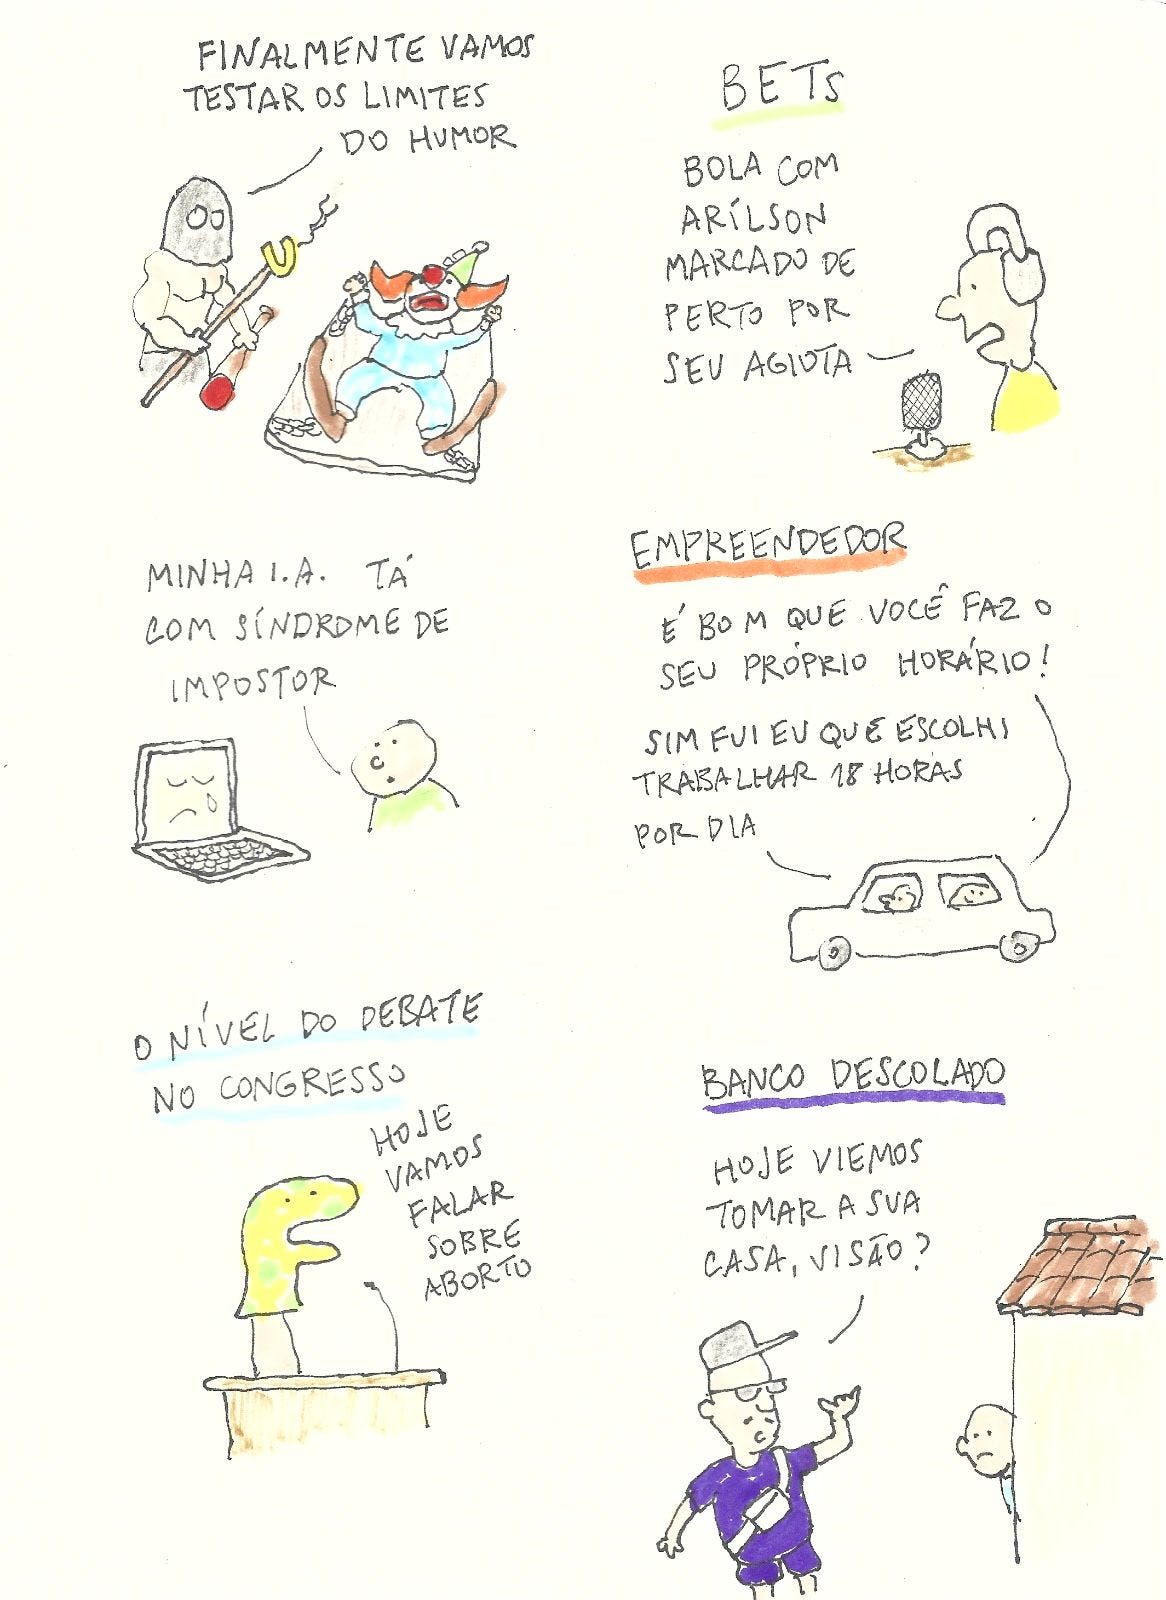 FINALMENTE VAMOS
TESTAR OS LIMITES
DO HUMOR
BETS
BOLA COM
ARÍLSON
MARCADO DE
PERTO POR
SEU AGIOTA
MINHA I.A. TÁ
COM SÍNDROME DE
IMPOSTOR
EMPREENDEDOR
É BOM QUE VOCÊ FAZ O
SEU PRÓPRIO HORÁRIO!
SIM FUI EU QUE ESCOLHI
TRABALHAR 18 HORAS
POR DIA
O NÍVEL DO DEBATE
NO CONGRESSO
HOJE
VAMOS
FALAR
SOBRE
ABORTO
BANCO DESCOLADO
HOJE VIEMOS
TOMAR A SUA
CASA, VISÃO?